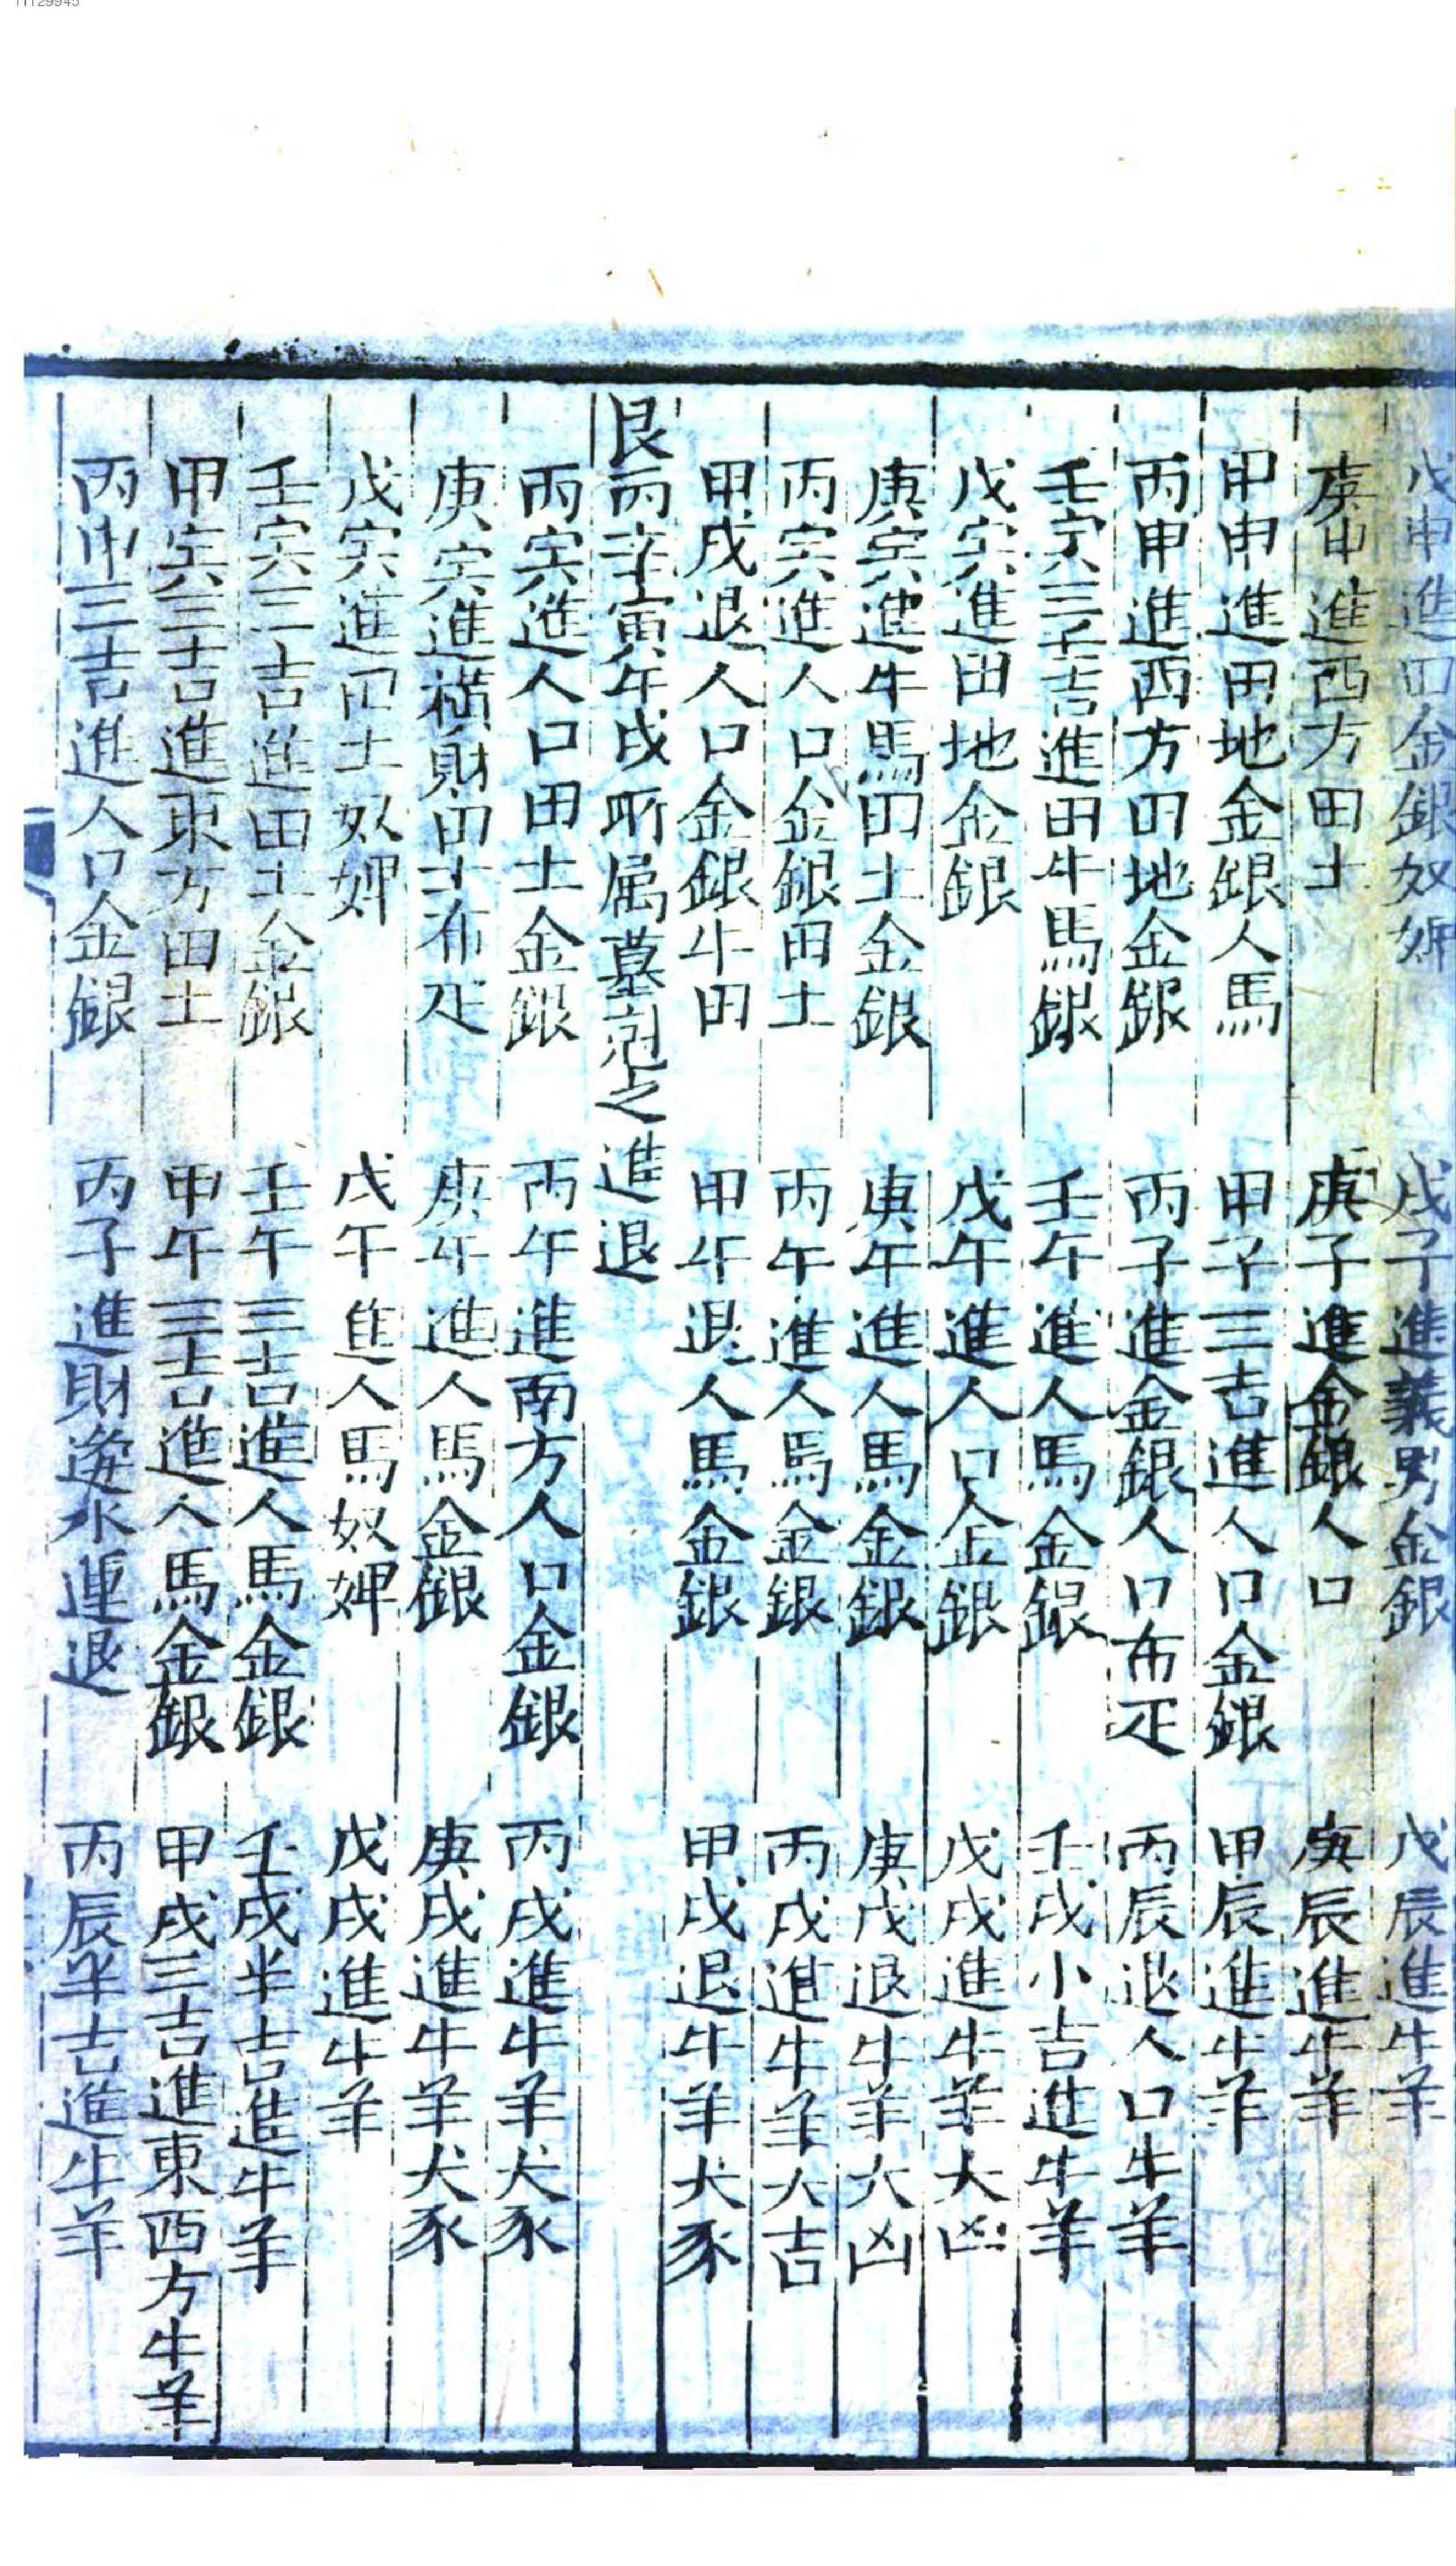 戊申進田金銀奴婢　戊子進義男金銀　戊辰進牛羊
庚申進西方田土　庚子進金銀人口　庚辰進牛羊
甲申進田地金銀人馬　甲子三吉進人口金銀　甲辰進牛羊
丙申進西方田地金銀　丙子進金銀人口布疋　丙辰退人口牛羊
壬寅三壬吉進田牛馬銀　壬午進人馬金銀　壬戌小吉進牛羊
戊寅進田地金銀　戊午進人口金銀　戊戌進牛羊大凶
庚寅進牛馬田土金銀　庚午進人馬金銀　庚戌退牛羊大凶
丙寅進人口金銀田土　丙午進人馬金銀　丙戌進牛羊大吉
甲戌退人口金銀牛田　甲午退人馬金銀　甲戌退牛羊犬豕
艮丙辛寅午戌所属墓之進退
丙寅進人口田土金銀　丙午進南方人口金銀　丙戌進牛羊犬豕
庚寅進橫財田土布疋　庚午進人馬金銀　庚戌進牛羊犬豕
戊寅進田土奴婢　戊午進人馬奴婢　戊戌進牛羊
壬寅三吉進田土金銀　壬午三吉進人馬金銀　壬戌半吉進牛羊
甲寅三吉進東方田土　甲午三吉進人馬金銀　甲戌三吉進東西方牛羊
丙申三吉進人口金銀　丙子進財水運退　丙辰半吉進牛羊